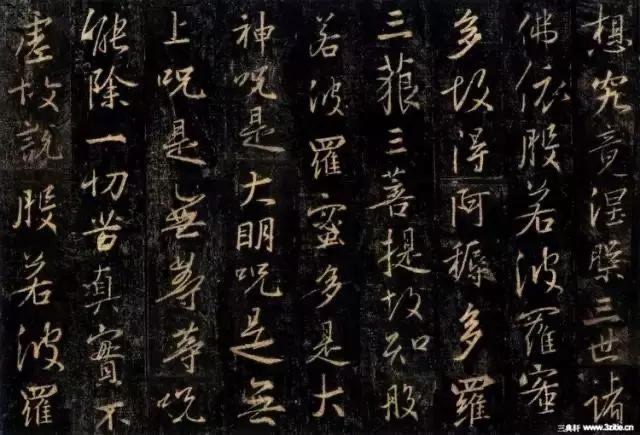 想究竟涅槃三世诸
佛依般若波羅蜜
多故得阿耨多羅
三藐三菩提故知般
若波羅蜜多是大
神呪是大明呪是無
上呪是無等等呪
能除一切苦真實不
虛故說般若波羅
三典轩 www.3zitie.cn